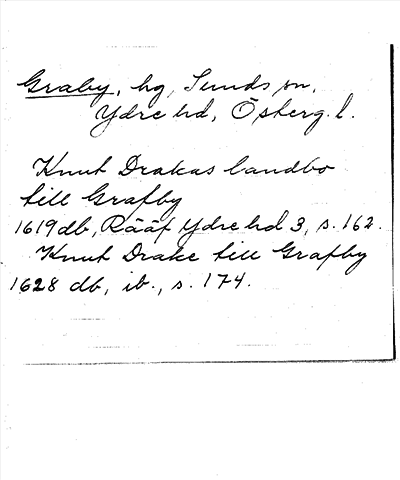 Graby, hg, Sunds sn,
Ydre hd, Östergl.
Knut Drakas landbo
till Grafby
1619 db, Rääf Ydre hd 3, s. 162.
Knut Drake till Grafby
1628 db, ib., s. 174.